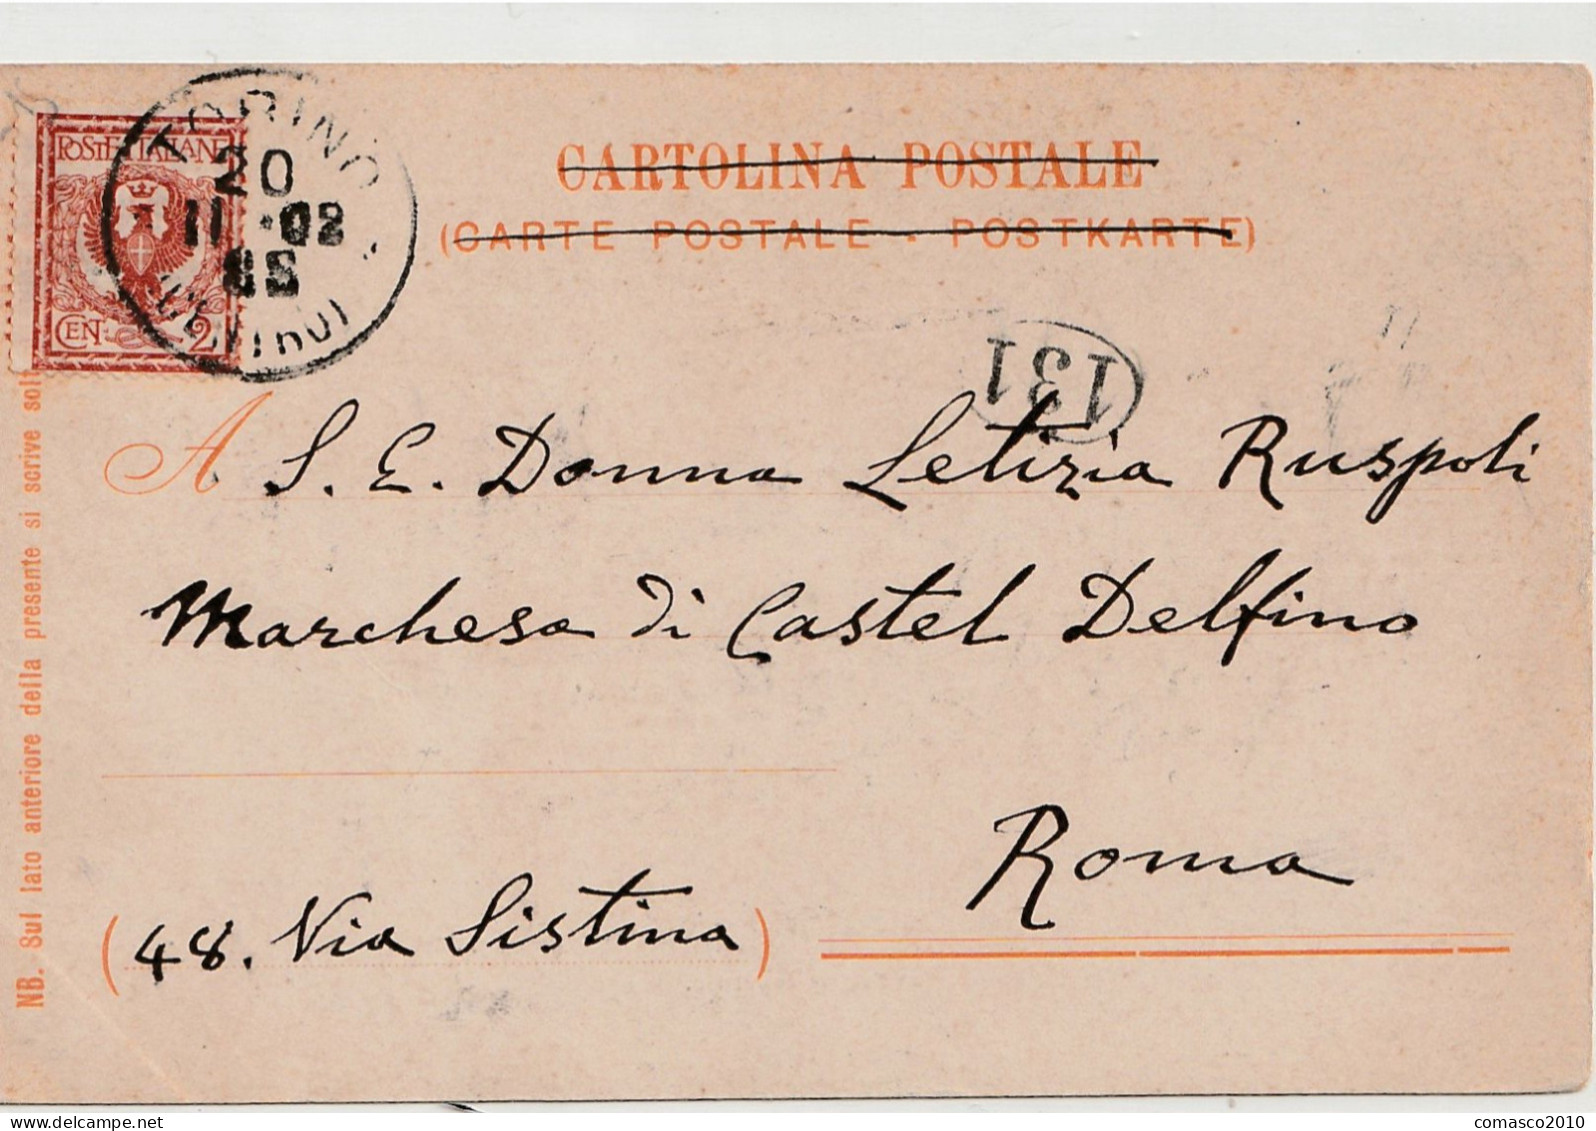 POSTE ITALIANE
CENT. 2
TORINO
20
11 -02
8S
CARTOLINA POSTALE
(CARTE POSTALE - POSTKARTE)
131
A S. E. Donna Letizia Ruspoli
Marchesa di Castel Delfino
Roma
(48. Via Sistina)
NB. Sul lato anteriore della presente si scrive sol
comasco2010